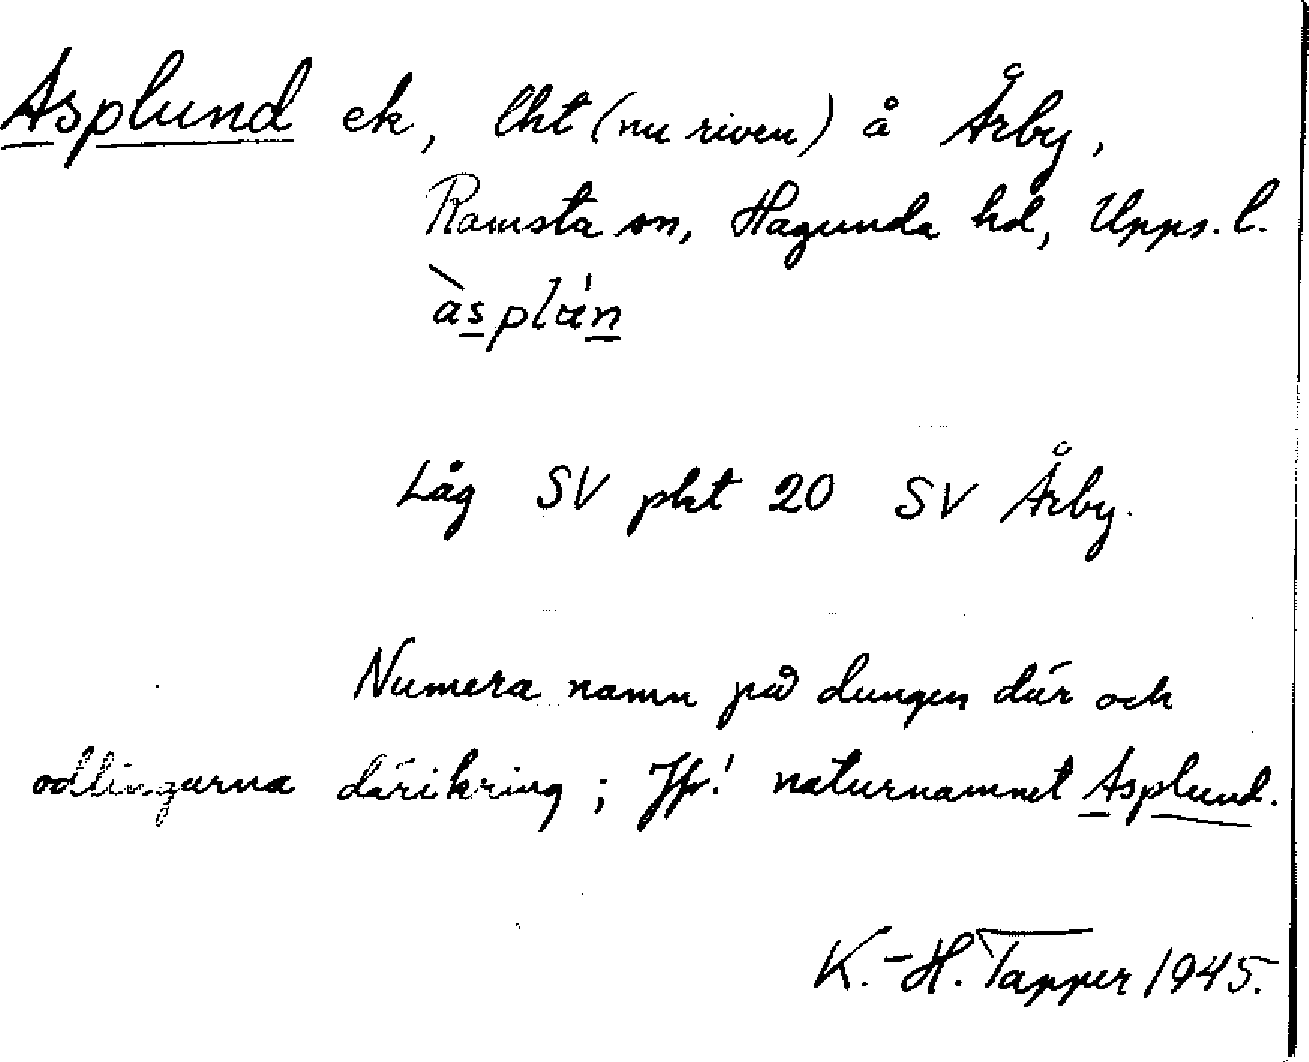 Asplund ek, lht (nu riven) å Årby,
Ramsta sn, Hagunda hd, Upps. l.
àsplán
Låg SV pkt 20 SV Årby.
Numera namn på dungen där och
odlingarna däríkring; Jfr! naturnamnet Asplund.
K.-H. Tapper 1945.